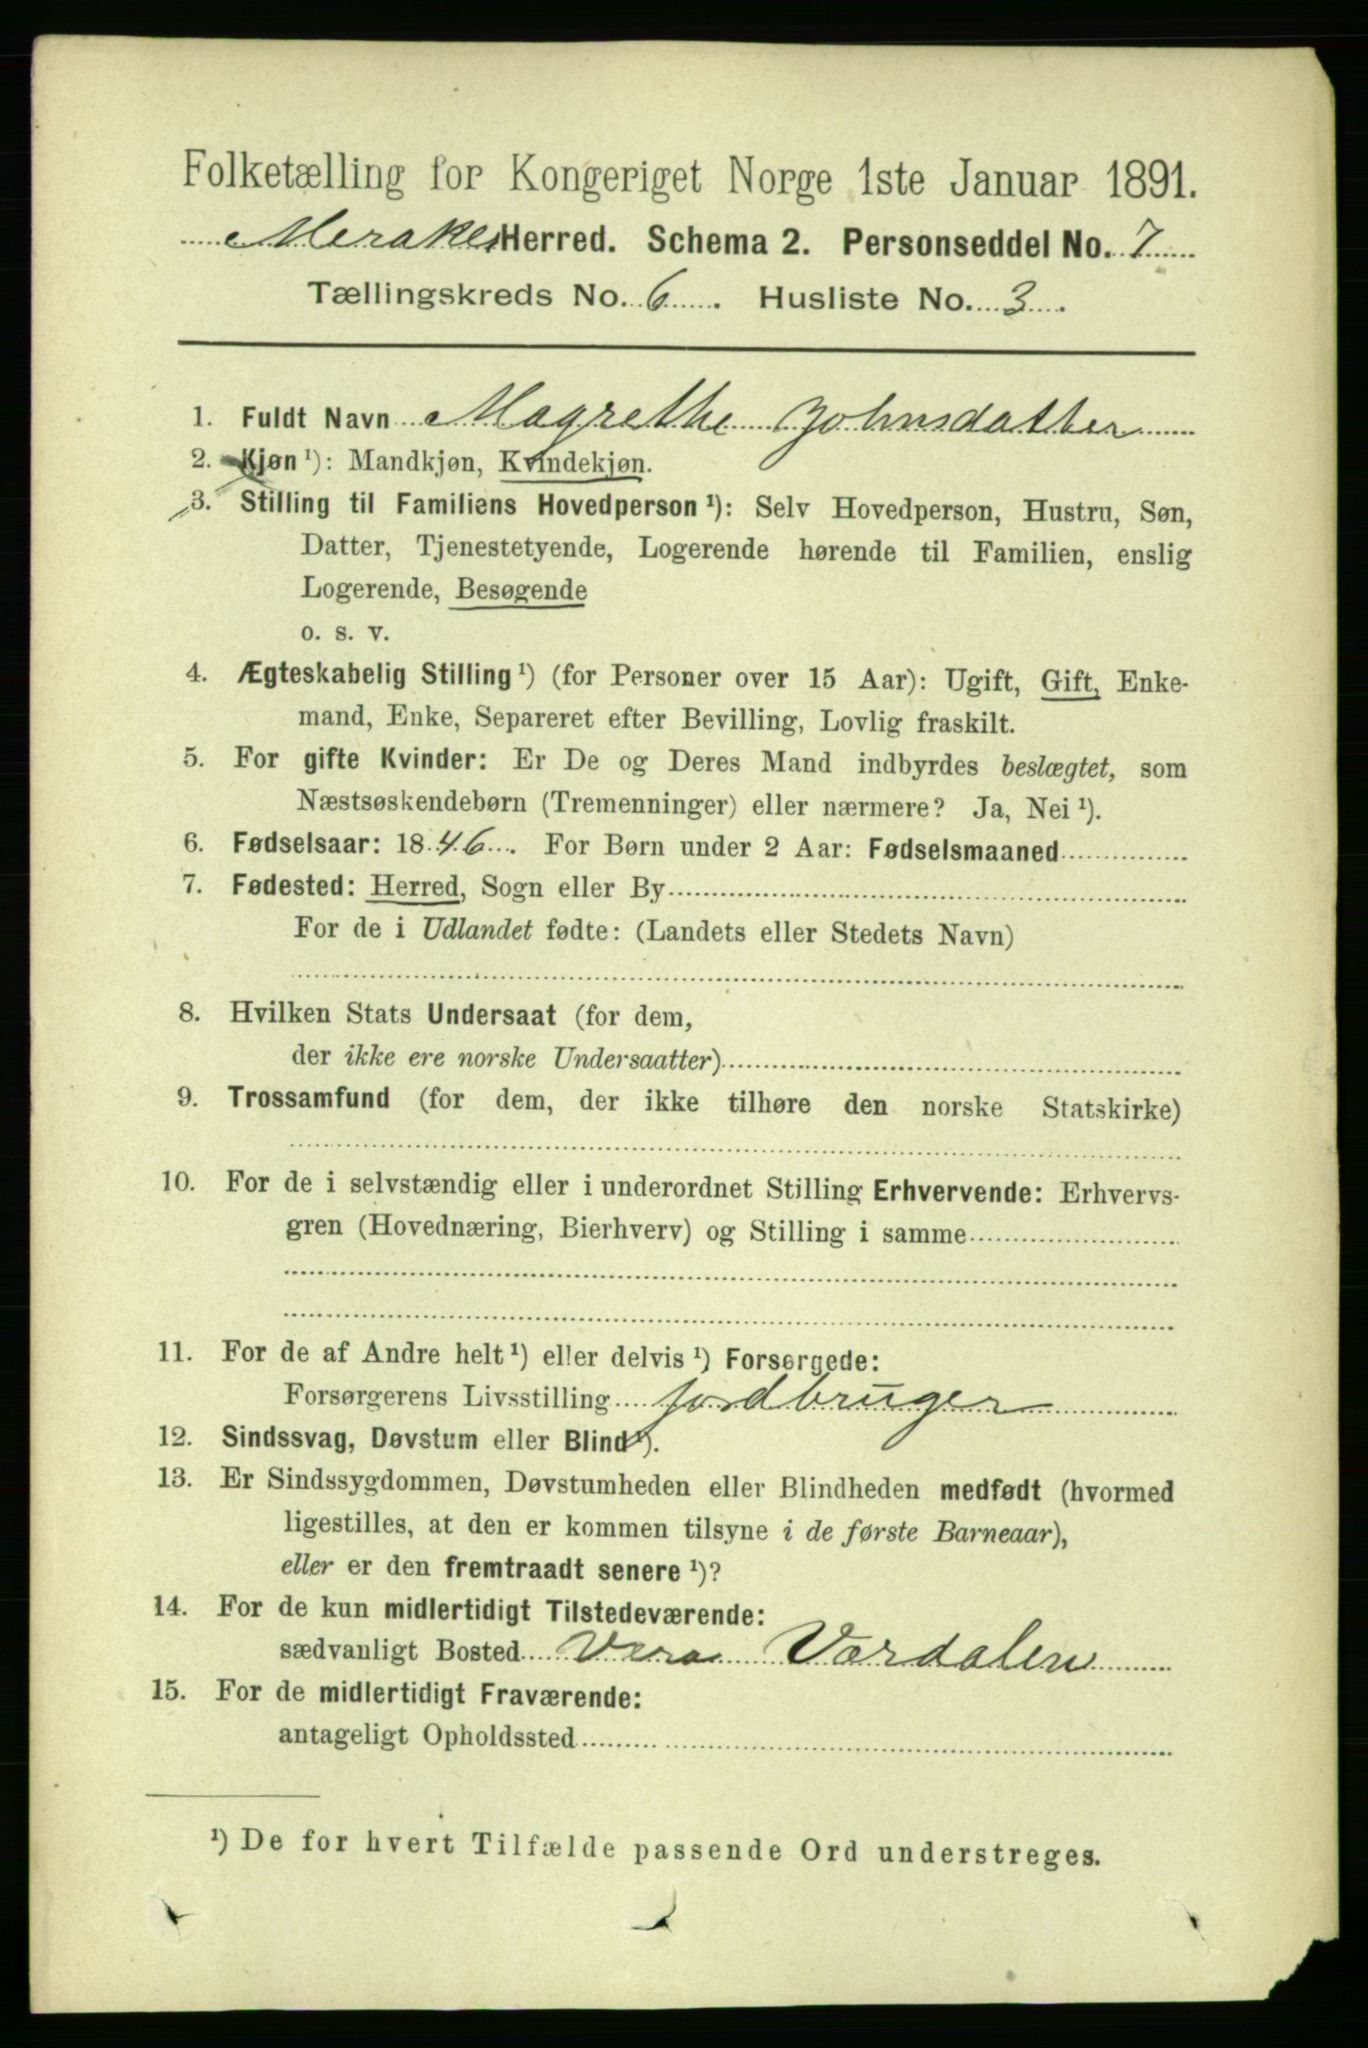 Folketælling for Kongeriget Norge 1ste Januar 1891.
Merakes Herred. Schema 2. Personseddel No. 7
Tællingskreds No. 6. Husliste No. 3.
1. Fuldt Navn Magrethe Johnsdatter
2. Kjøn ¹): Mandkjøn, Kvindekjøn.
3. Stilling til Familiens Hovedperson ¹): Selv Hovedperson, Hustru, Søn,
Datter, Tjenestetyende, Logerende hørende til Familien, enslig
Logerende, Besøgende
o. s. v.
4. Ægteskabelig Stilling ¹) (for Personer over 15 Aar): Ugift, Gift, Enke-
mand, Enke, Separeret efter Bevilling, Lovlig fraskilt.
5. For gifte Kvinder: Er De og Deres Mand indbyrdes beslægtet, som
Næstsøskendebørn (Tremenninger) eller nærmere? Ja, Nei ¹).
6. Fødselsaar: 1846. For Børn under 2 Aar: Fødselsmaaned
7. Fødested: Herred, Sogn eller By
For de i Udlandet fødte: (Landets eller Stedets Navn)
8. Hvilken Stats Undersaat (for dem,
der ikke ere norske Undersaatter)
9. Trossamfund (for dem, der ikke tilhøre den norske Statskirke)
10. For de i selvstændig eller i underordnet Stilling Erhvervende: Erhvervs-
gren (Hovednæring, Bierhverv) og Stilling i samme
11. For de af Andre helt ¹) eller delvis ¹) Forsørgede:
Forsørgerens Livsstilling Jordbruger
12. Sindssvag, Døvstum eller Blind ¹).
13. Er Sindssygdommen, Døvstumheden eller Blindheden medfødt (hvormed
ligestilles, at den er kommen tilsyne i de første Barneaar),
eller er den fremtraadt senere ¹)?
14. For de kun midlertidigt Tilstedeværende:
sædvanligt Bosted Vera Værdalen
15. For de midlertidigt Fraværende:
antageligt Opholdssted
¹) De for hvert Tilfælde passende Ord understreges.